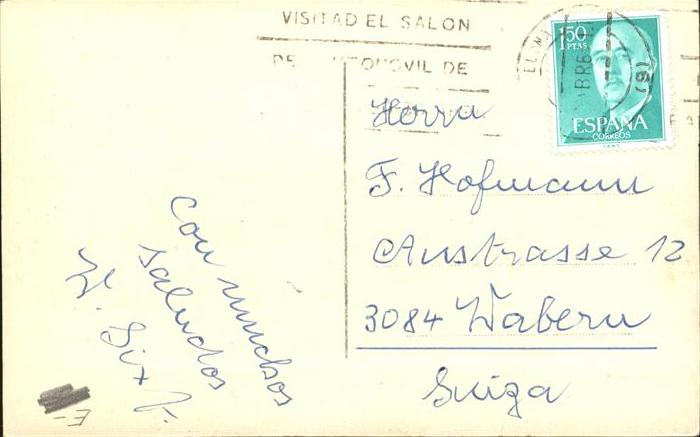 VISITAD EL SALON
DEL AUTOMOVIL DE
1'50
PTAS
ESPAÑA
CORREOS
(6)
ABR6
Herrn
F. Hofmann
Austrasse 12
3084 Wabern
Suiza
Con muchos
saludos
W. Six F.
E-